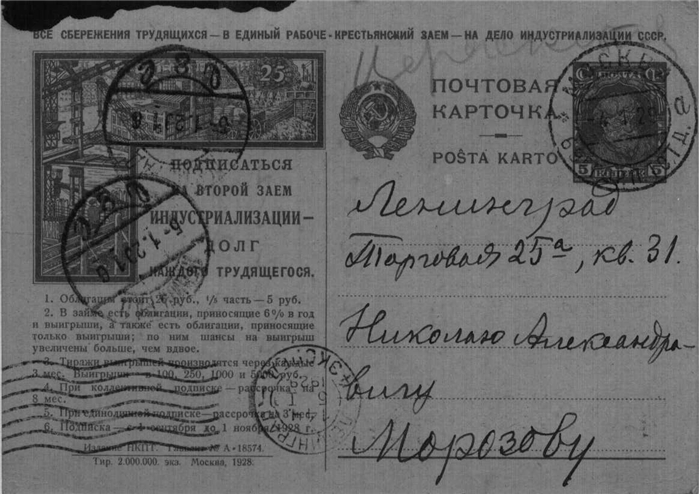 ВСЕ СБЕРЕЖЕНИЯ ТРУДЯЩИХСЯ — В ЕДИНЫЙ РАБОЧЕ-КРЕСТЬЯНСКИЙ ЗАЕМ — НА ДЕЛО ИНДУСТРИАЛИЗАЦИИ СССР.
25
ПОДПИСАТЬСЯ
НА ВТОРОЙ ЗАЕМ
ИНДУСТРИАЛИЗАЦИИ—
ДОЛГ
КАЖДОГО ТРУДЯЩЕГОСЯ.
1. Облигации стоят 25 руб., 1/5 часть — 5 руб.
2. В займе есть облигации, приносящие 6% в год
и выигрыши, а также есть облигации, приносящие
только выигрыши; по ним шансы на выигрыш
увеличены больше, чем вдвое.
3. Тиражи выигрышей производятся через каждые
3 мес. Выигрыши в 100, 250, 1000 и руб.
4. При коллективной подписке — рассрочка на
8 мес.
5. При единоличной подписке — рассрочка на 3 мес.
6. Подписка — с 1 сентября до 1 ноября 1928 г.
Издание НКПТ. № А-18574.
Тир. 2.000.000. экз. Москва, 1928.
ПОЧТОВАЯ
КАРТОЧКА
POŜTA KARTO
ПОЧТА
5 КОПЕЕК 5
МОСКВА
Ленинград
Торговая 25а, кв. 31.
Николаю Александро-
вичу
Морозову